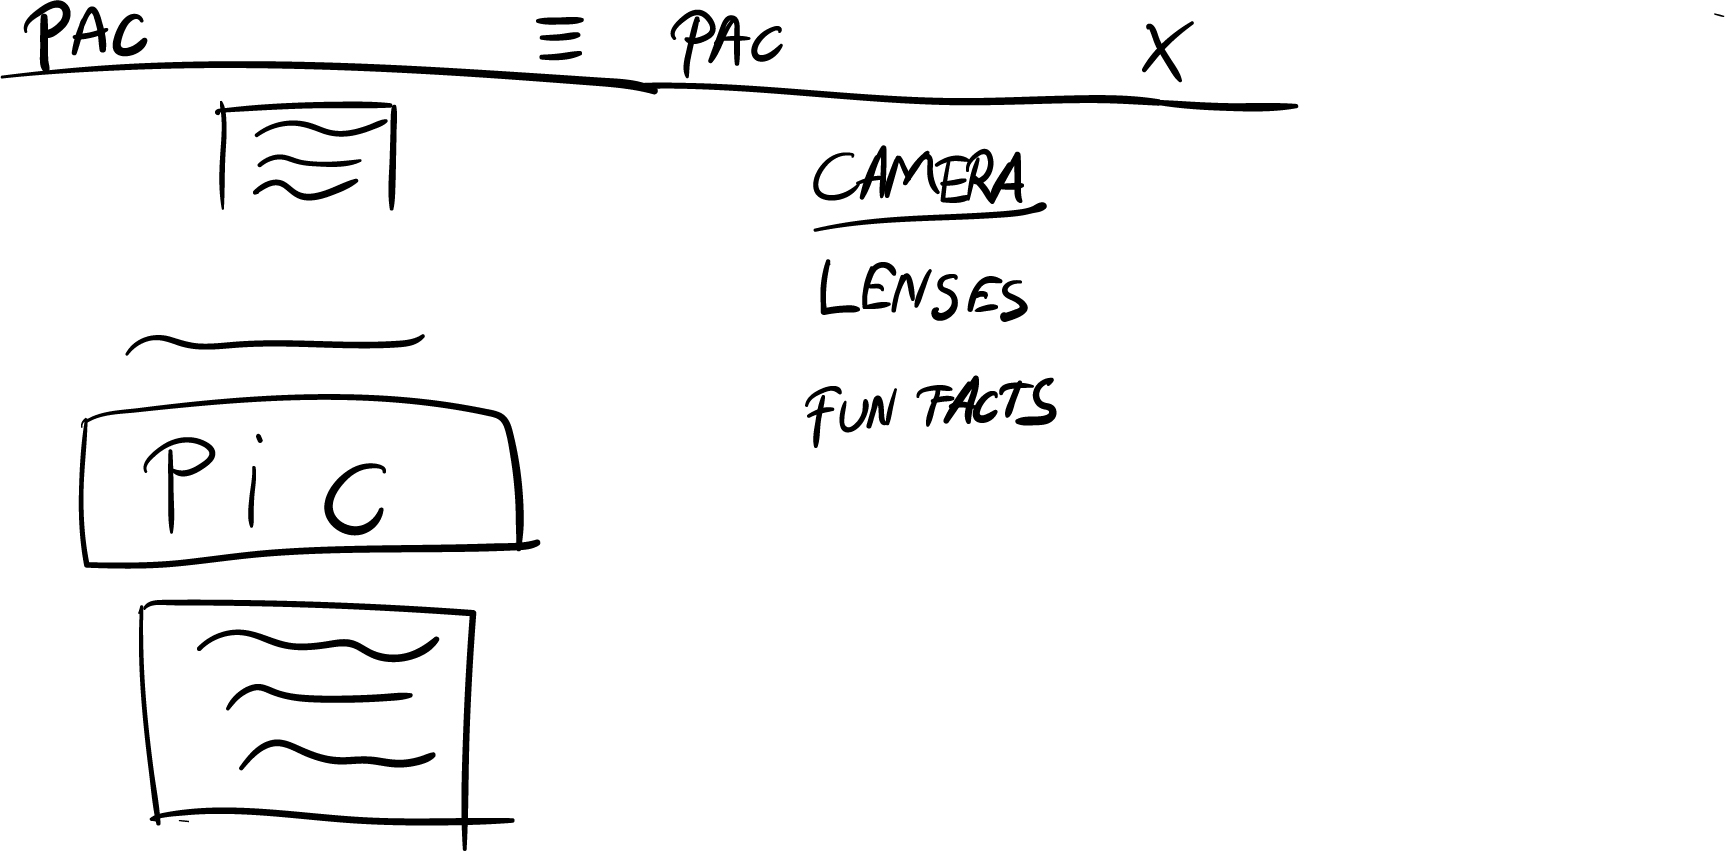 PAC
PiC
PAC X
CAMERA
LENSES
FUN FACTS